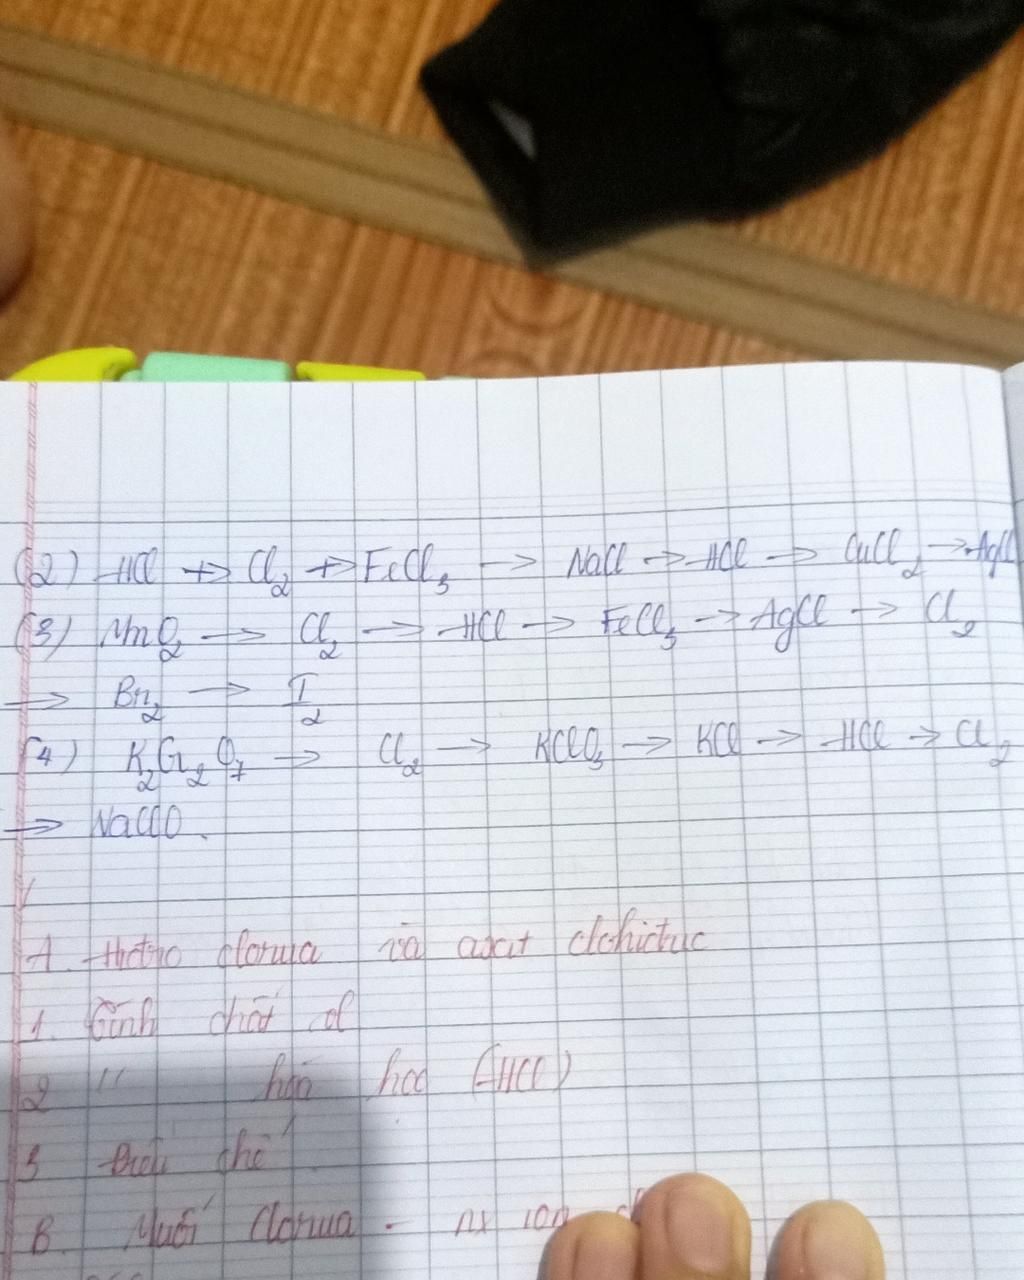 (2) HCl → Cl₂ → FeCl₃ → NaCl → HCl → CuCl₂ → AgCl
(3) MnO₂ → Cl₂ → HCl → FeCl₃ → AgCl → Cl₂
→ Br₂ → I₂
(4) K₂Cr₂O₇ → Cl₂ → KClO₃ → KCl → HCl → Cl₂
→ NaClO.
A. Hidro clorua và axit clohidric
1. Tính chất vl
2 " hóa học (HCl)
3 Điều chế
B. Muối Clorua - nx ion